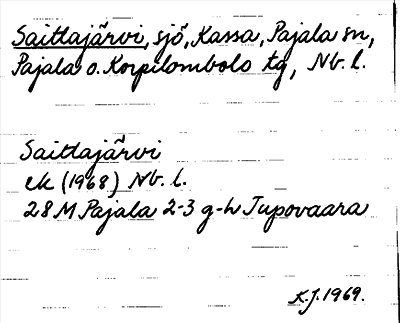 Saittajärvi, sjö, Kassa, Pajala sn,
Pajala o. Korpilombolo tg, Nb. l.
Saittajärvi
ek (1968) Nb. l.
28M Pajala 2-3 g-h Jupovaara
K.J. 1969.